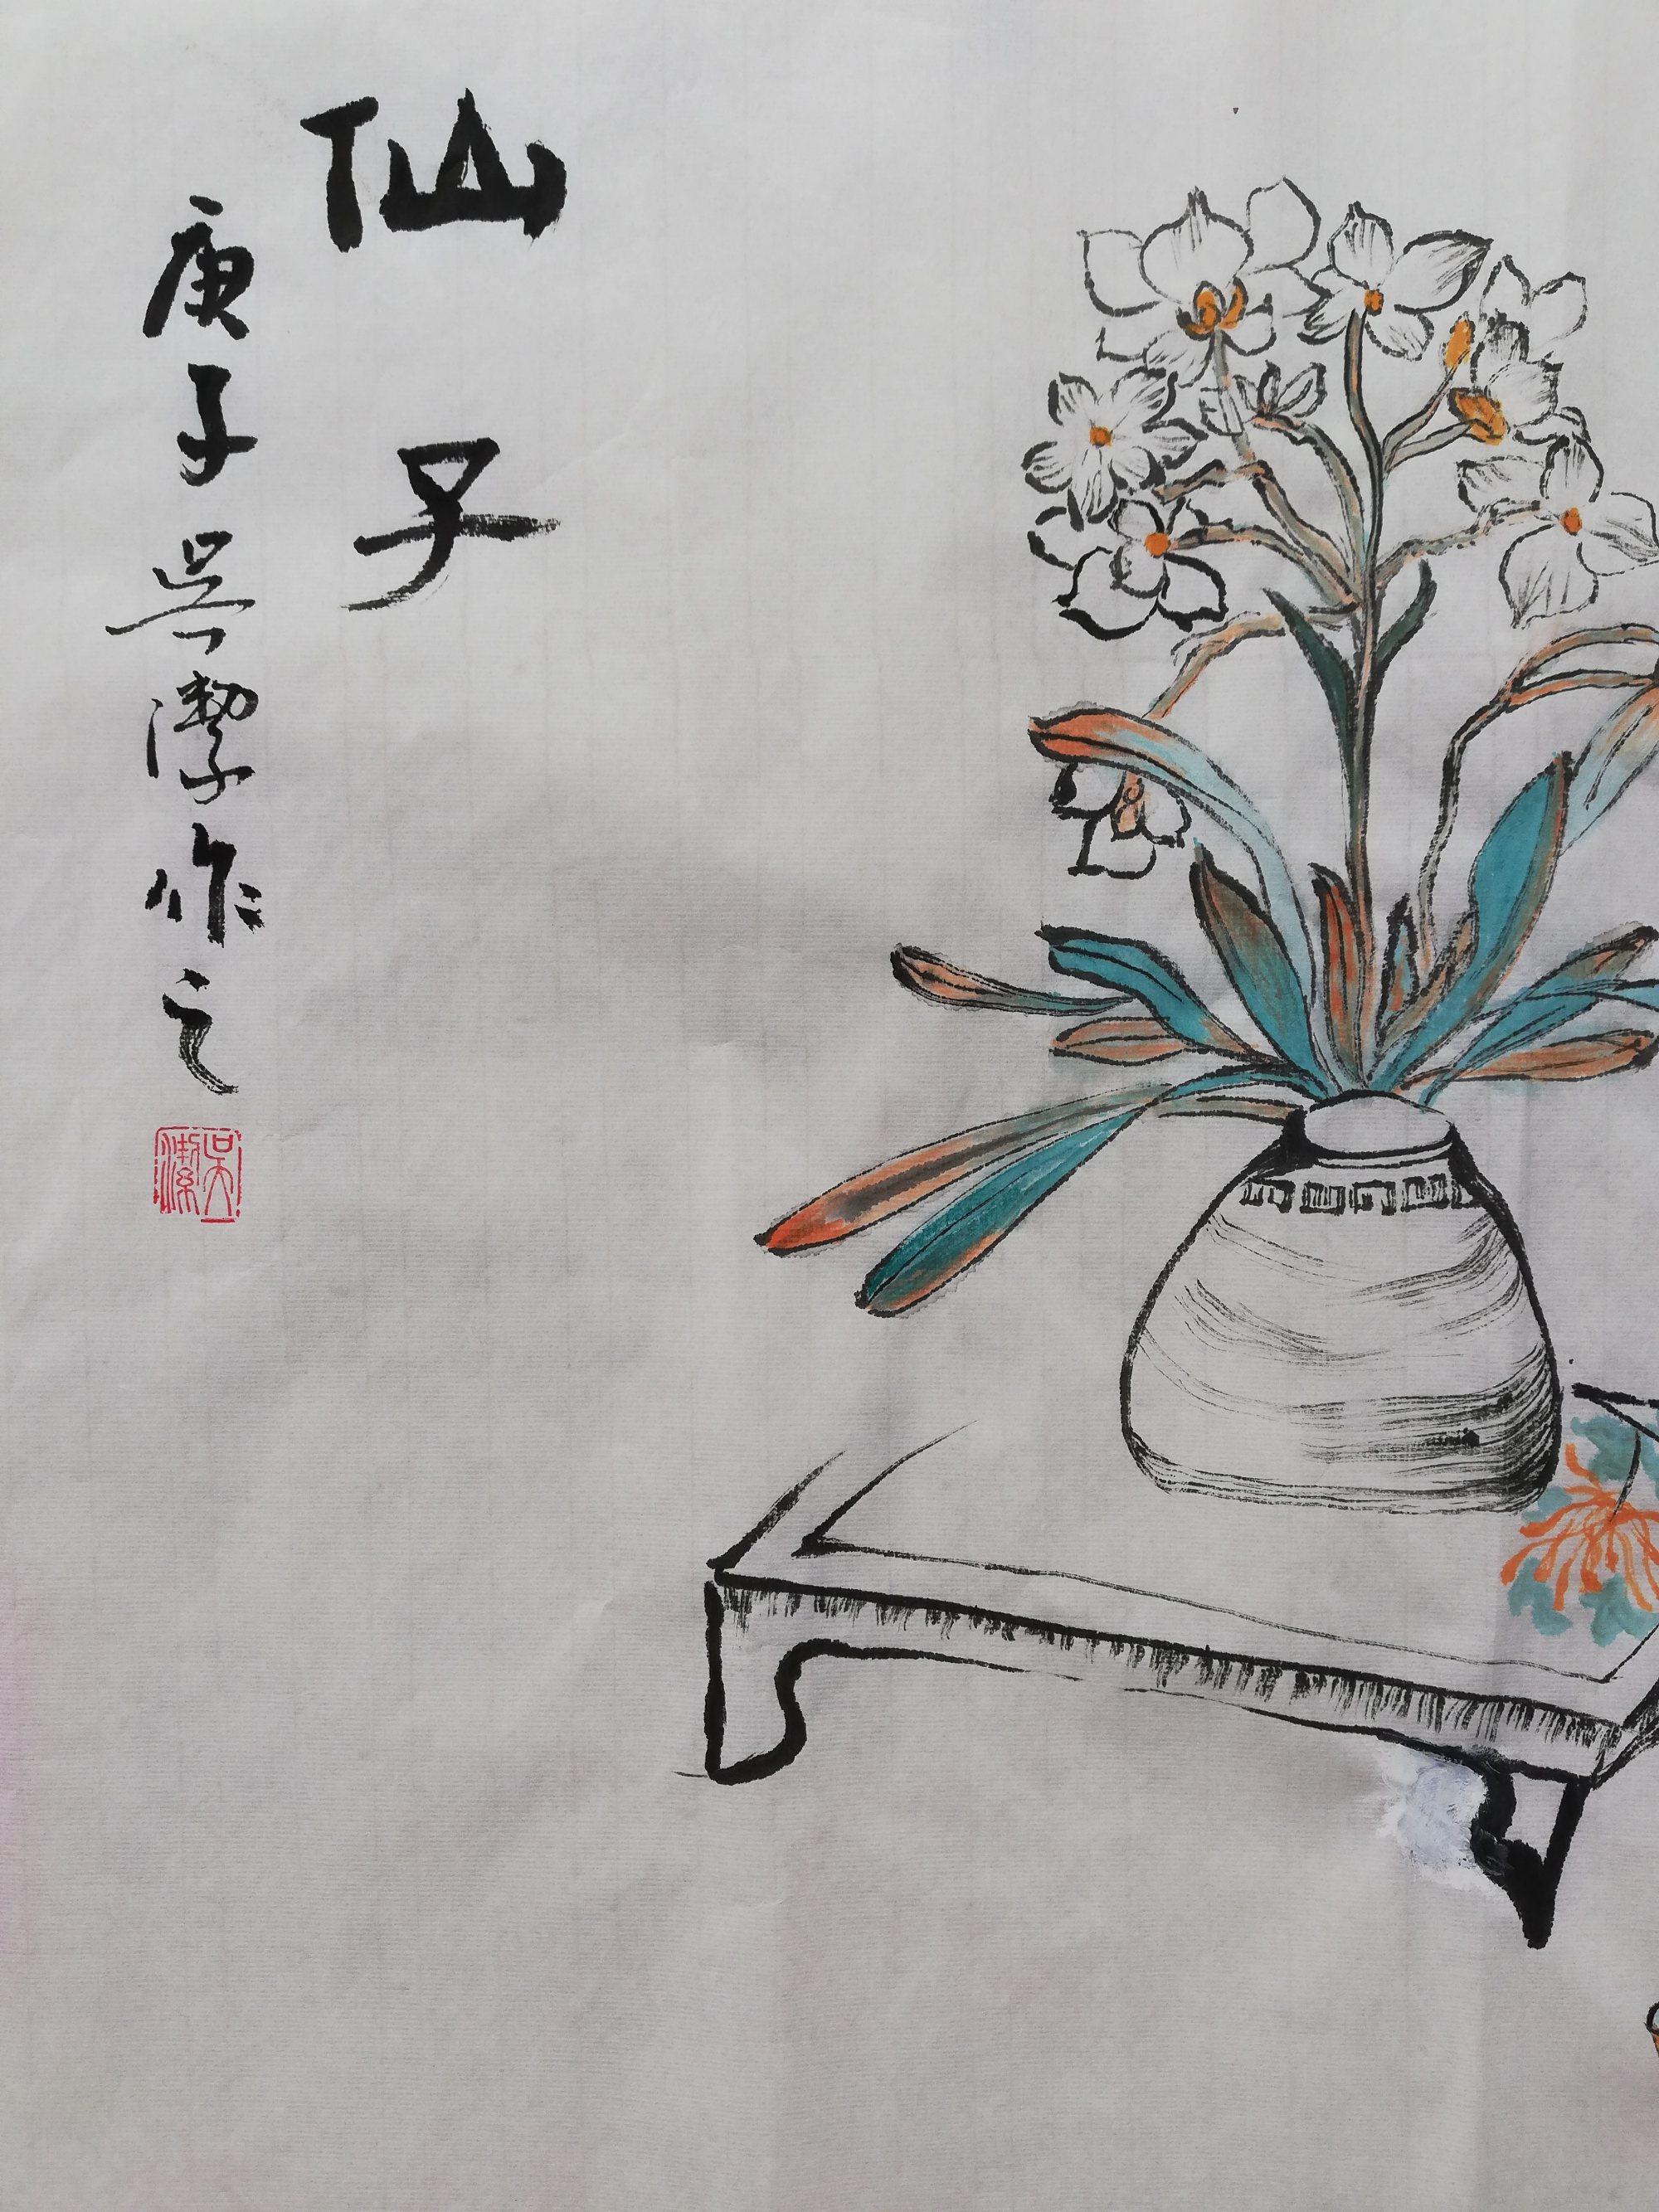 仙子
庚子吴潔作之
吴潔